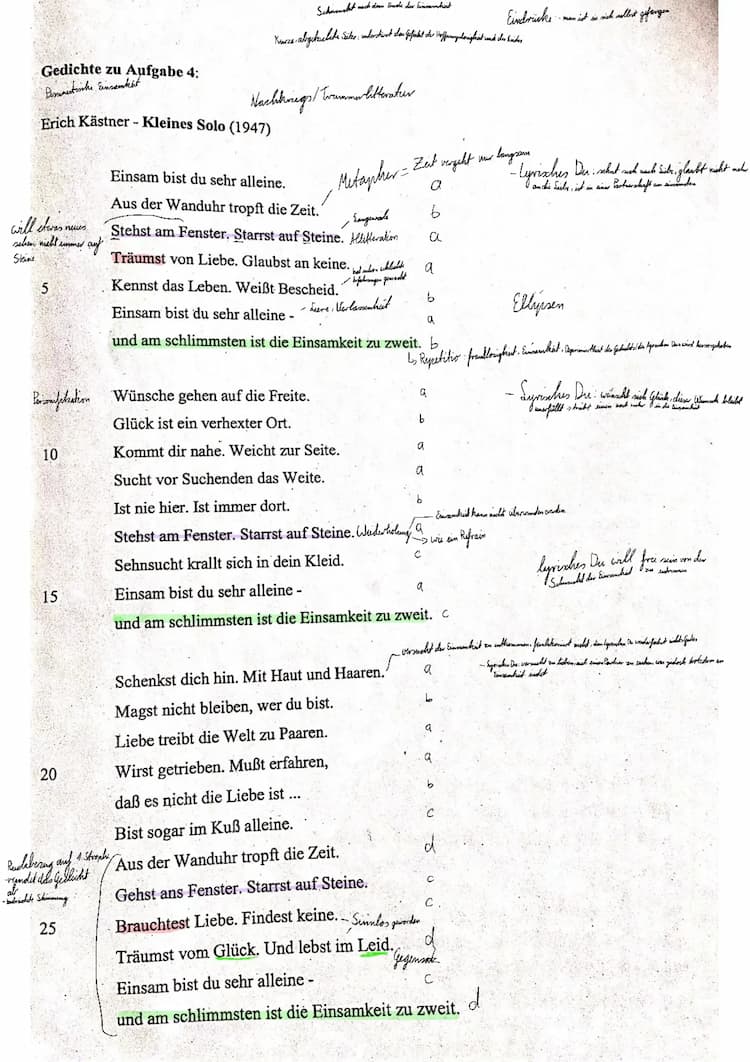 Sehnsucht nach dem Ende der Einsamkeit
Eindrücke - man ist in sich selbst gefangen
Kurze abgehackte Sätze, unterstützt das Gefühl der Hoffnungslosigkeit und des Leides
Gedichte zu Aufgabe 4:
Einsamkeit
Nachkriegs/Trümmerlitteratur
Erich Kästner - Kleines Solo (1947)
Metapher = Zeit vergeht nur langsam
- Lyrisches Du: sehnt sich nach Liebe, glaubt nicht mehr
an die Liebe, ist in einer Partnerschaft am einsamsten
Einsam bist du sehr alleine. a
Aus der Wanduhr tropft die Zeit. b
will etwas neues
sehen, nicht immer auf
Steine
Langeweile
Stehst am Fenster. Starrst auf Steine. Alliteration a
Träumst von Liebe. Glaubst an keine. a
hat schon schlechte
Erfahrungen gemacht
5 Kennst das Leben. Weißt Bescheid. b
Einsam bist du sehr alleine - - Leere, Verlassenheit a
Ellipsen
und am schlimmsten ist die Einsamkeit zu zweit. b
Repetitio
Personifikation
Wünsche gehen auf die Freite. a
- Lyrisches Du: wünscht sich Glück, dieser Wunsch bleibt
unerfüllt
Glück ist ein verhexter Ort. b
10 Kommt dir nahe. Weicht zur Seite. a
Sucht vor Suchenden das Weite. a
Ist nie hier. Ist immer dort. b
Einsamkeit kann nicht überwunden werden
Stehst am Fenster. Starrst auf Steine. Wiederholung a
wie ein Refrain
Sehnsucht krallt sich in dein Kleid. c
lyrisches Du will frei sein von der
Sehnsucht der Einsamkeit zu entrinnen
15 Einsam bist du sehr alleine - a
und am schlimmsten ist die Einsamkeit zu zweit. c
versucht der Einsamkeit zu entkommen, funktioniert nicht, dem lyrischen Du
Schenkst dich hin. Mit Haut und Haaren. a
- Lyrisches Du: versucht
Magst nicht bleiben, wer du bist. b
Liebe treibt die Welt zu Paaren. a
20 Wirst getrieben. Mußt erfahren, a
daß es nicht die Liebe ist ... b
Bist sogar im Kuß alleine. c
Rückbezug auf 1 Strophe
Aus der Wanduhr tropft die Zeit. d
Gehst ans Fenster. Starrst auf Steine. c
25 Brauchtest Liebe. Findest keine. - Sinnlos geworden c
Träumst vom Glück. Und lebst im Leid. Gegensatz d
Einsam bist du sehr alleine - c
und am schlimmsten ist die Einsamkeit zu zweit. d